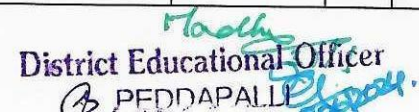 Madhu
District Educational Officer
PEDDAPALLI